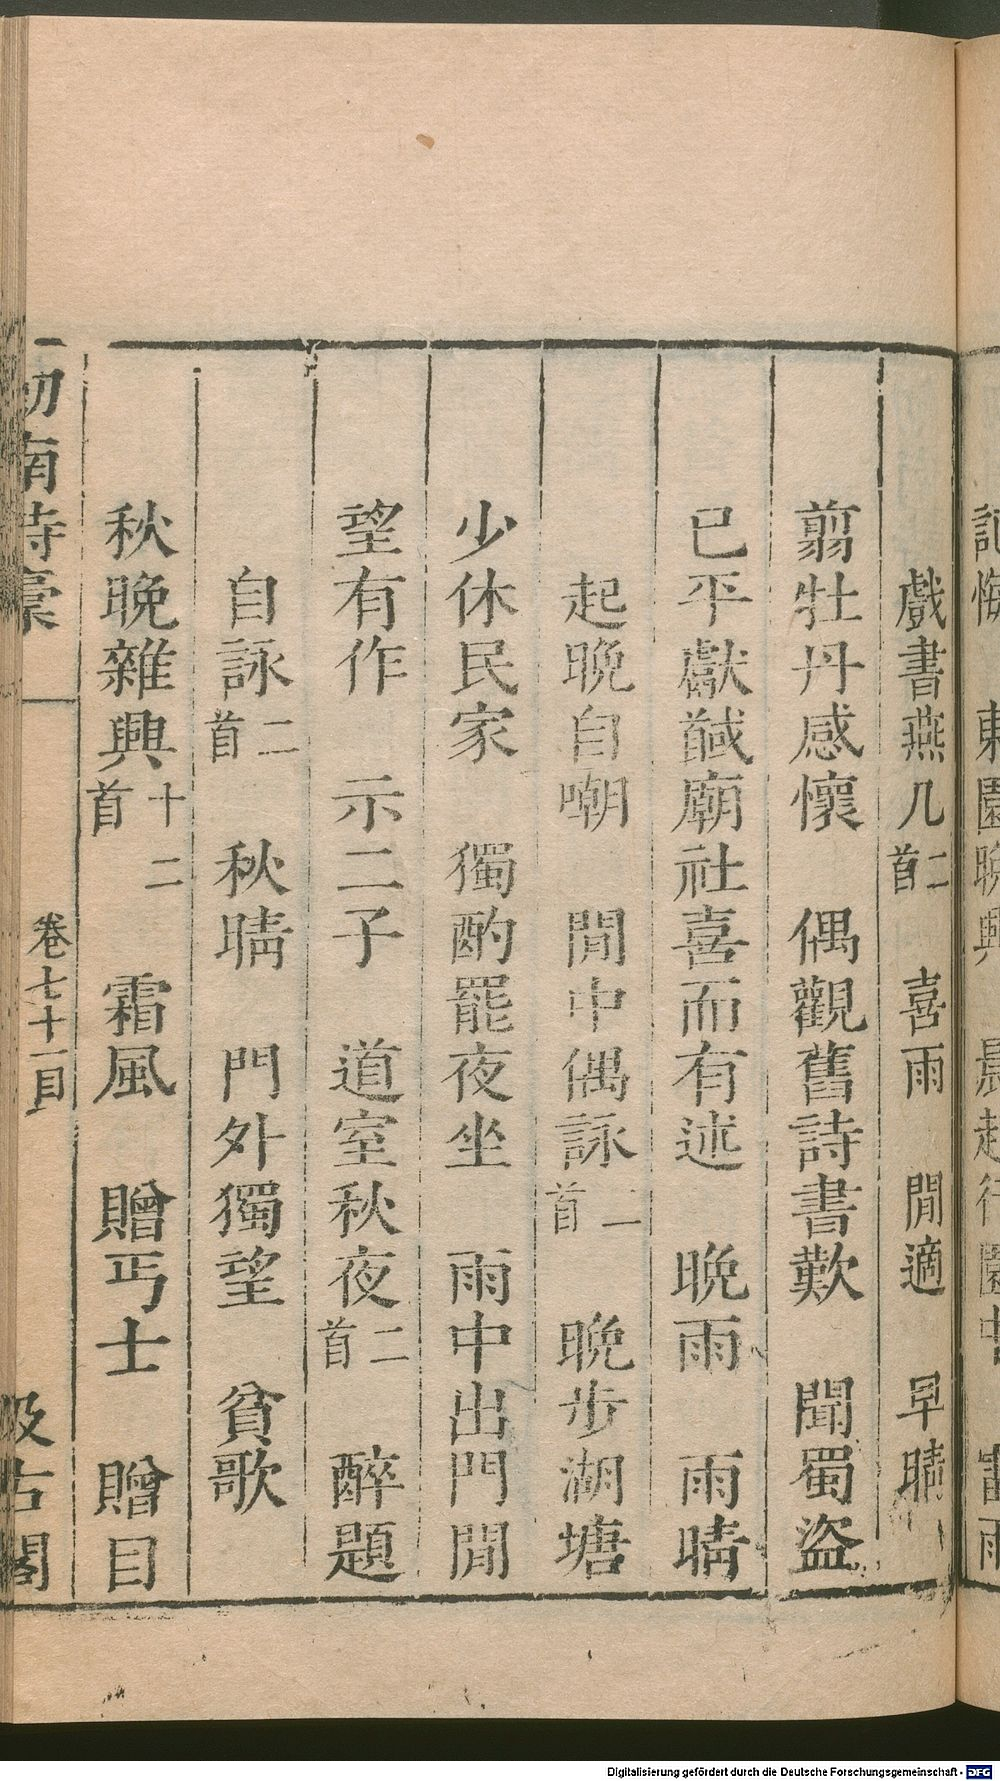 記悔 東園晚興 晨起行園中 雷雨
戲書燕几二首 喜雨 閒適 早晴
翦牡丹感懷 偶觀舊詩書歎 聞蜀盜
已平獻馘廟社喜而有述 晚雨 雨晴
起晚自嘲 閒中偶詠二首 晚步湖塘
少休民家 獨酌罷夜坐 雨中出門閒
望有作 示二子 道室秋夜二首 醉題
自詠二首 秋晴 門外獨望 貧歌
秋晚雜興十二首 霜風 贈丐士 贈目
劒南詩稾 卷七十一目 汲古閣
Digitalisierung gefördert durch die Deutsche Forschungsgemeinschaft - DFG